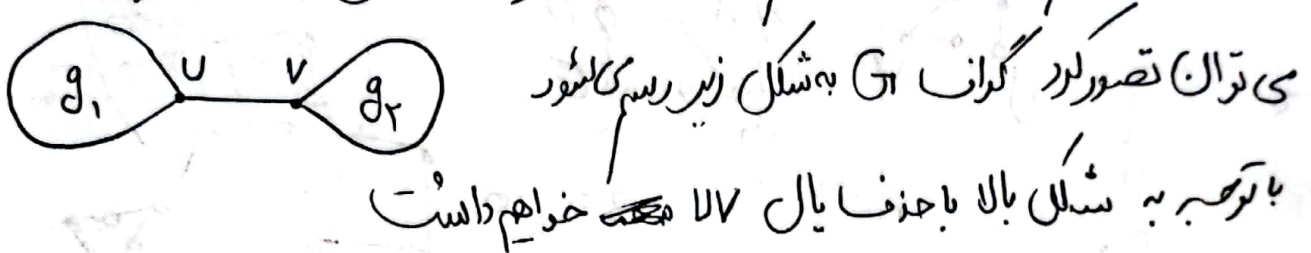 g₁ U V g₂
می توان تصور کرد گراف G به شکل زیر رسم می شود
با توجه به شکل بالا با حذف یال UV خواهیم داشت